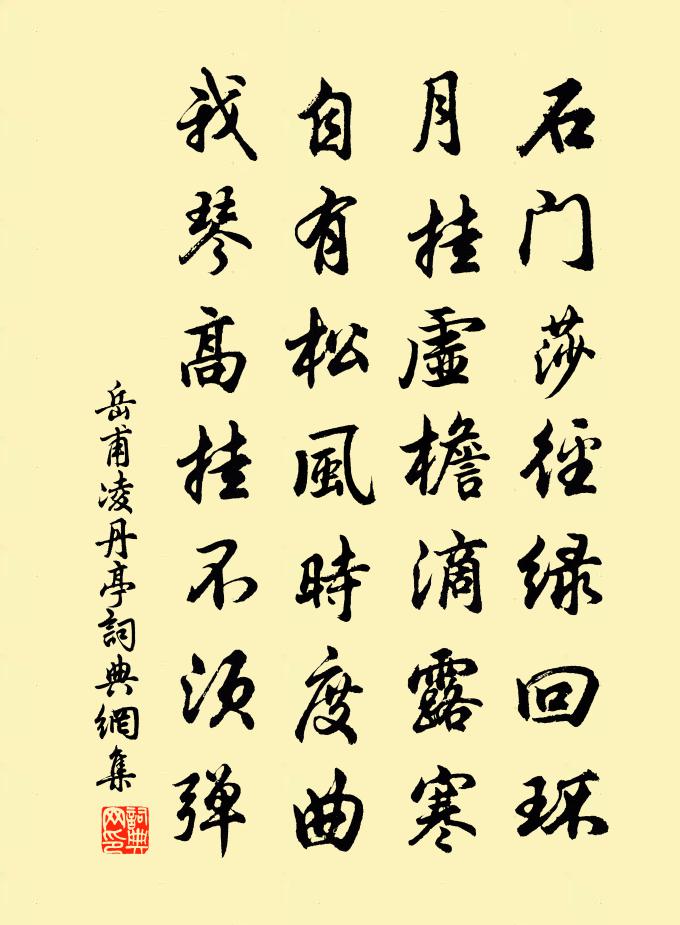 石门莎径绿回环
月挂虚檐滴露寒
自有松風時度曲
我琴高挂不须弹
岳甫凌丹亭詞典網集
詞典网印